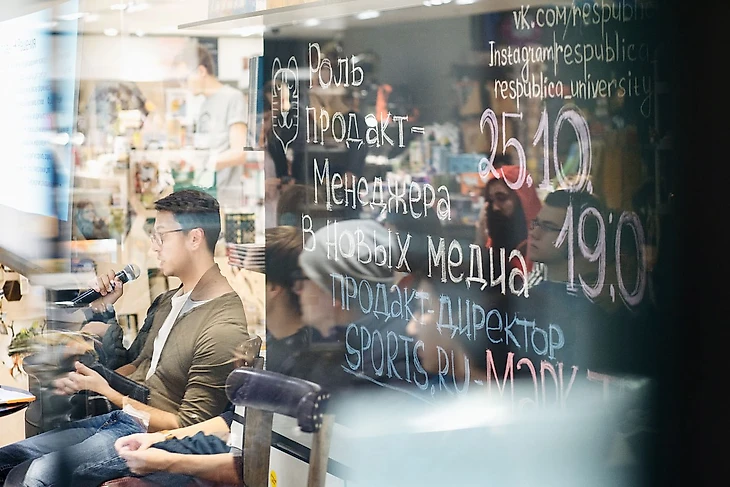 vk.com/respublic
Instagram/respublica
respublica_university
Роль
продакт-
менеджера
в новых медиа"
25.10.
19:0
продакт-директор
SPORTS.RU-Марк Т